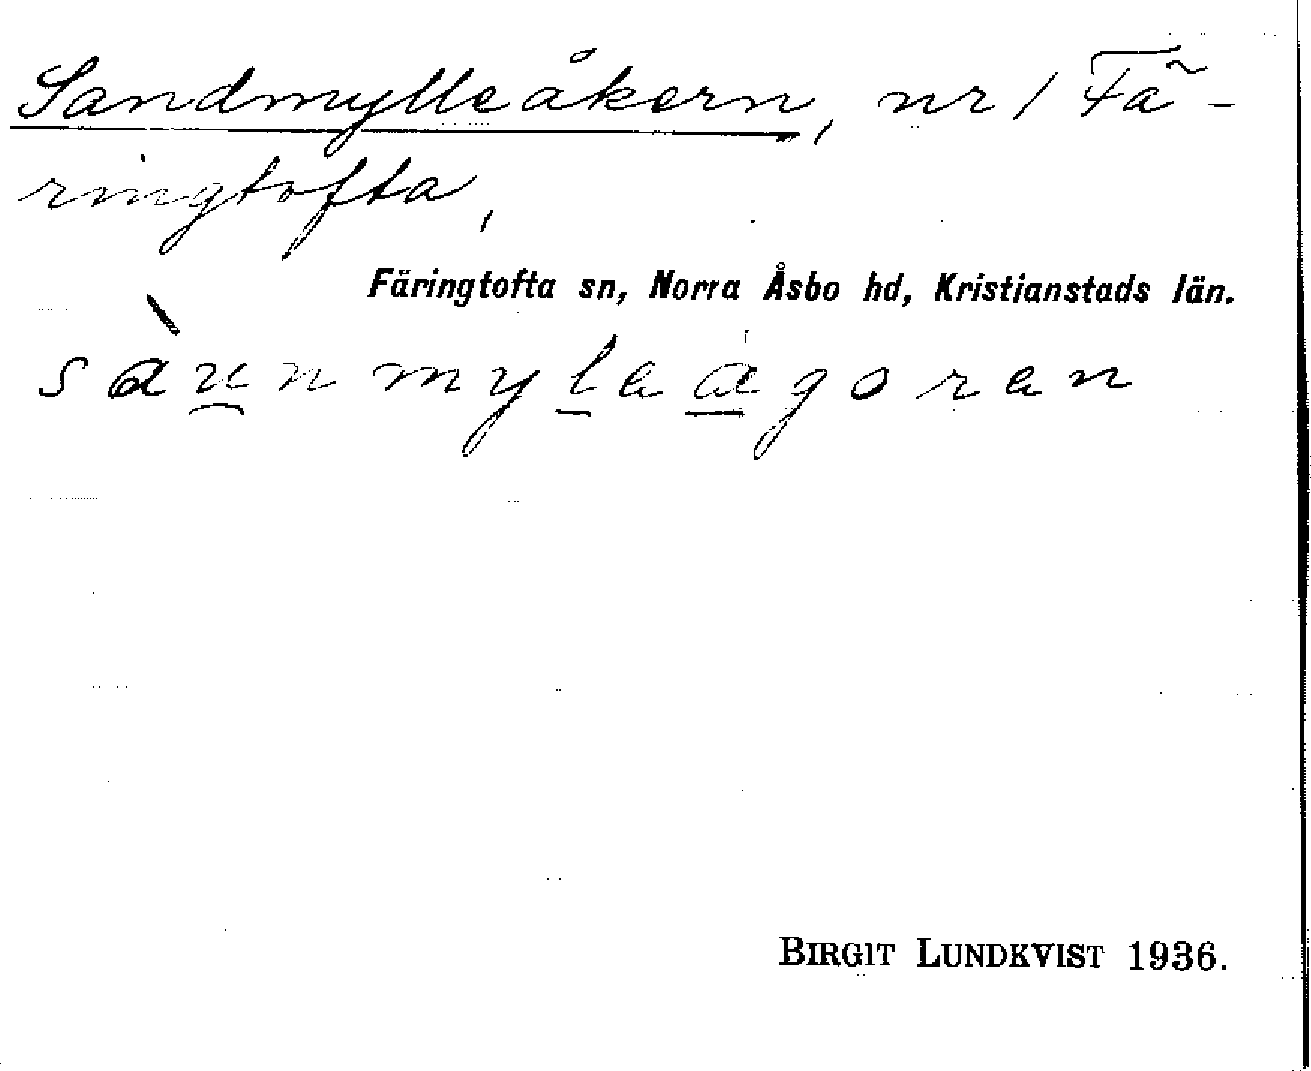 Sandmylleåkern, nr 1 Fä-
ringtofta,
Färingtofta sn, Norra Åsbo hd, Kristianstads län.
sàu̯nmyl̲ea̲goran
BIRGIT LUNDKVIST 1936.